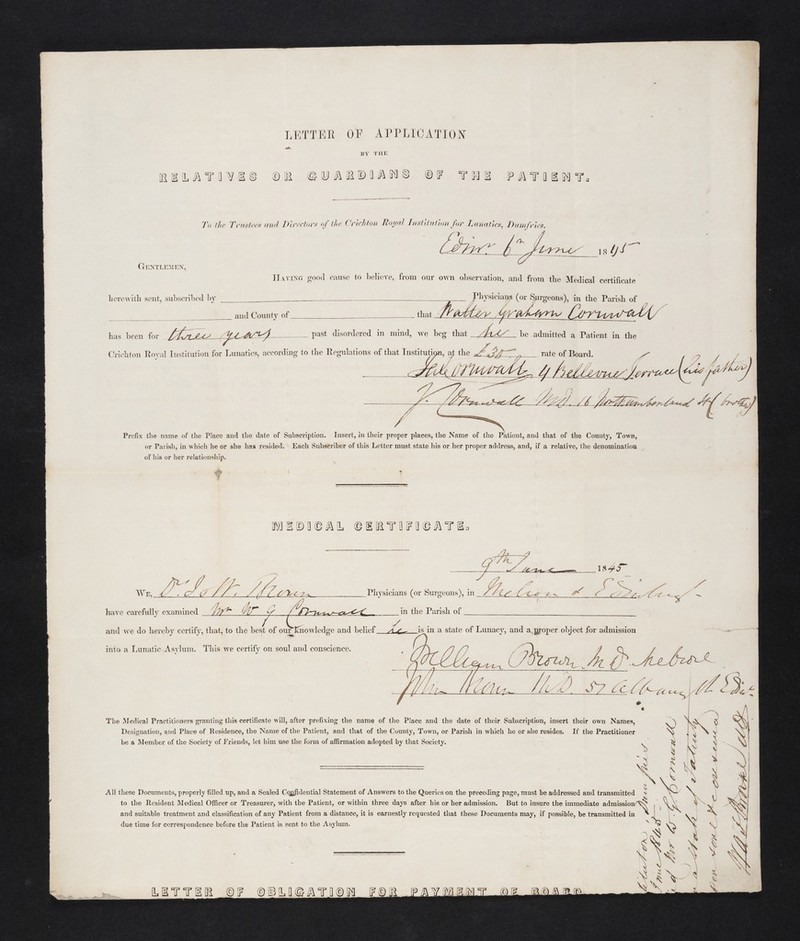 LETTER OF APPLICATION
BY THE
RELATIVES OR GUARDIANS OF THE PATIENT.
To the Trustees and Directors of the Crichton Royal Institution for Lunatics, Dumfries.
Edinr. 6th June 1845
GENTLEMEN,
HAVING good cause to believe, from our own observation, and from the Medical certificate
herewith sent, subscribed by Physicians (or Surgeons), in the Parish of
and County of that Walter Graham Cornwall
has been for three years past disordered in mind, we beg that he be admitted a Patient in the
Crichton Royal Institution for Lunatics, according to the Regulations of that Institution, at the £30 rate of Board.
Cornwall 4 Bellevue Terrace (his father)
J. Cornwall M.D. 16 Northumberland St (brother)
Prefix the name of the Place and the date of Subscription. Insert, in their proper places, the Name of the Patient, and that of the County, Town,
or Parish, in which he or she has resided. Each Subscriber of this Letter must state his or her proper address, and, if a relative, the denomination
of his or her relationship.
MEDICAL CERTIFICATE.
9th June 1845
WE, Drs J & W. Brown Physicians (or Surgeons), in Melrose & Edinburgh
have carefully examined Mr W G Cornwall in the Parish of
and we do hereby certify, that, to the best of our knowledge and belief he is in a state of Lunacy, and a proper object for admission
into a Lunatic Asylum. This we certify on soul and conscience.
William Brown M.D. Melrose
John Brown M.D. 51 Albany St. Edinr.
The Medical Practitioners granting this certificate will, after prefixing the name of the Place and the date of their Subscription, insert their own Names,
Designation, and Place of Residence, the Name of the Patient, and that of the County, Town, or Parish in which he or she resides. If the Practitioner
be a Member of the Society of Friends, let him use the form of affirmation adopted by that Society.
All these Documents, properly filled up, and a Sealed Confidential Statement of Answers to the Queries on the preceding page, must be addressed and transmitted
to the Resident Medical Officer or Treasurer, with the Patient, or within three days after his or her admission. But to insure the immediate admission
and suitable treatment and classification of any Patient from a distance, it is earnestly requested that these Documents may, if possible, be transmitted in
due time for correspondence before the Patient is sent to the Asylum.
Dumfries
June 1845
Mr G Cornwall
state of Fatuity
soul & conscience
LETTER OF OBLIGATION FOR PAYMENT OF BOARD.